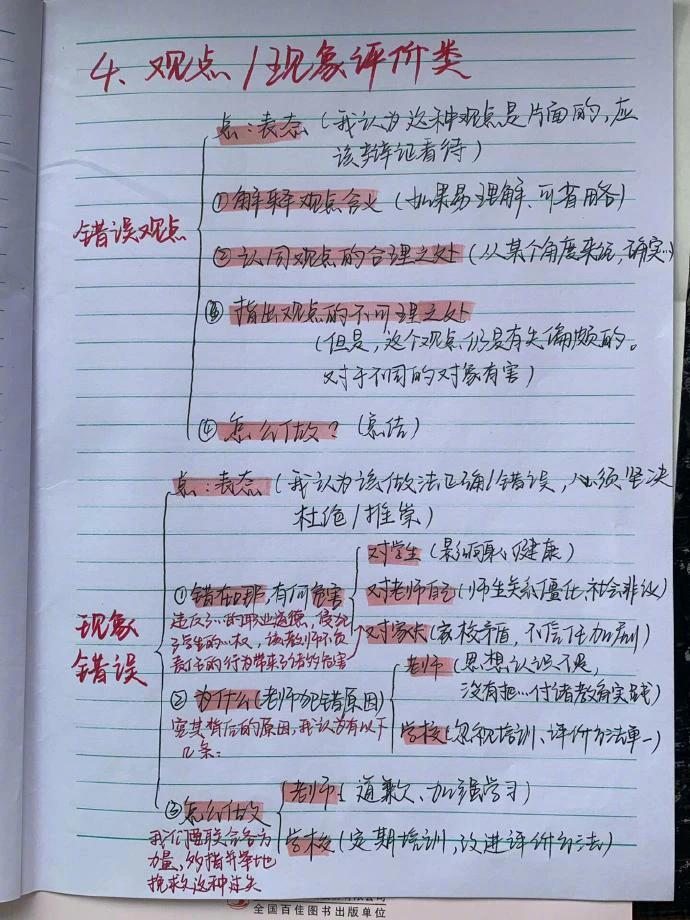 4、观点/现象评价类
点:表态(我认为这种观点是片面的,应
该辩证看待)
错误观点
①解释观点含义(如果易理解、可省略)
②认同观点的合理之处(从某个角度来说,确实…)
③指出观点的不可理之处
(但是,这个观点仍是有失偏颇的。
对于不同的对象有害)
④怎么做?(总结)
点:表态(我认为该做法正确/错误,必须坚决
杜绝/推崇)
现象
错误
①错在哪,有何危害
违反了…的职业道德,侵犯
了学生的…权,该教师不负
责任的行为带来了诸多危害
对学生(影响身心健康)
对老师自己(师生关系僵化、社会非议)
对家长(家校矛盾,不信任加剧)
②为什么(老师犯错原因)
究其背后的原因,我认为有以下
几条:
老师(思想认识不足,
没有把…付诸教育实践)
学校(忽视培训、评价方法单一)
③怎么做
我们要联合各方
力量,多措并举地
挽救这种过失
老师(道歉、加强学习)
学校(定期培训,改进评价方法)
全国百佳图书出版单位